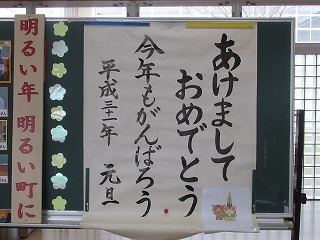 あけまして
おめでとう
今年もがんばろう
平成三十一年 元旦
明るい年 明るい町に